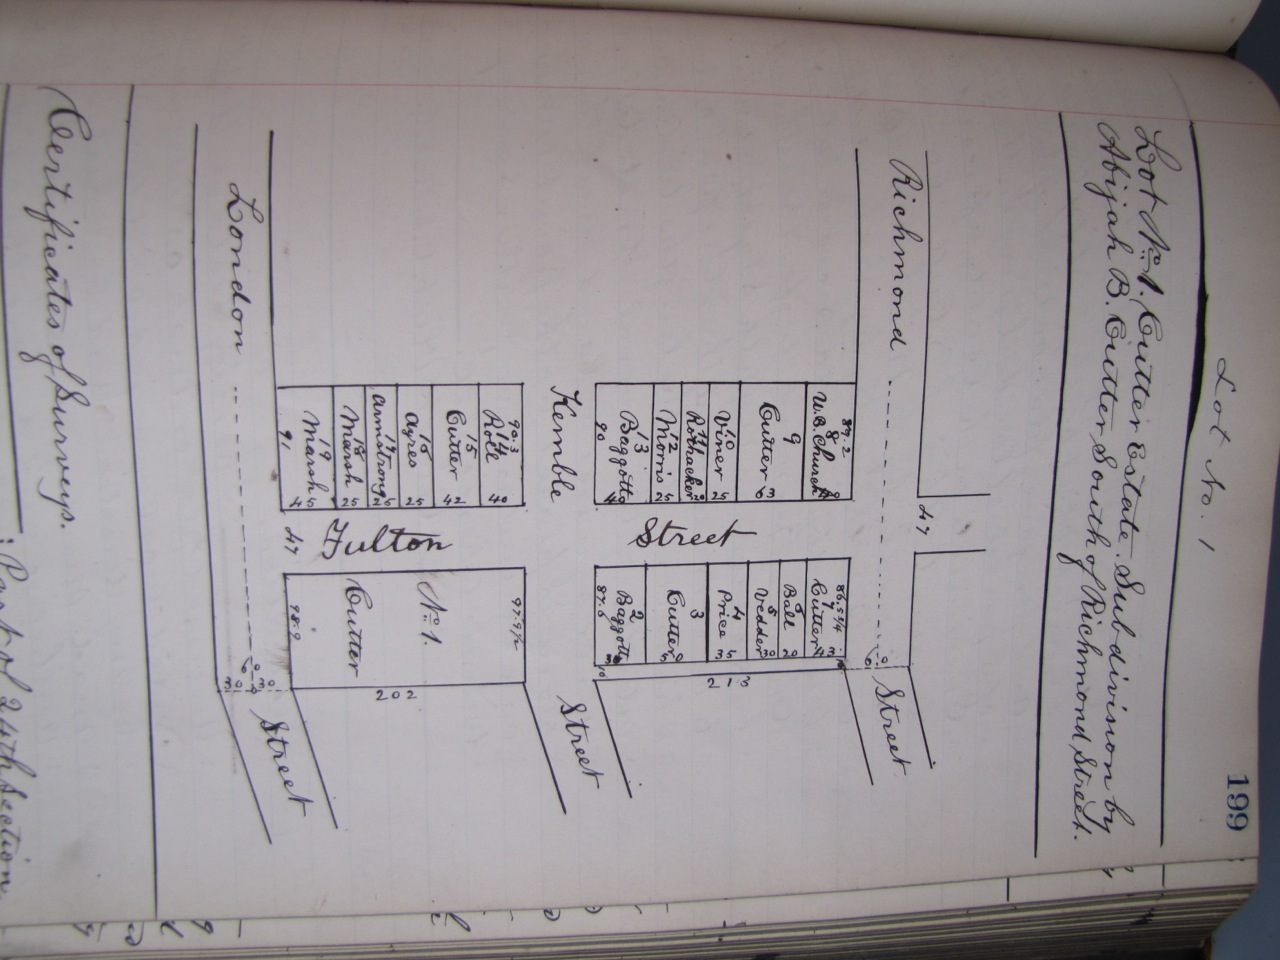 199
Lot No. 1
Lot No. 1. Cutter Estate. Subdivision by
Abijah B. Cutter South of Richmond Street.
Richmond Street
47
60
89.2
8
W.B. Church
9
Cutter
63
10
Viner
25
11
Rothacker
12
Morris
25
13
Baggott
40
90
86.5 3/4
7
Cutter
43
6
Ball
20
5
Vedder
30
4
Price
35
3
Cutter
50
2
Baggott
87.6
10
213
Kemble Street
Fulton Street
90.3
14
Roll
40
15
Cutter
42
16
Ayres
25
17
Armstrong
25
18
Marsh
25
19
Marsh
45
91
97.9 1/2
No. 1.
Cutter
98.9
202
47
London Street
60
30 30
Certificates of Surveys.
: Part of 24th Section